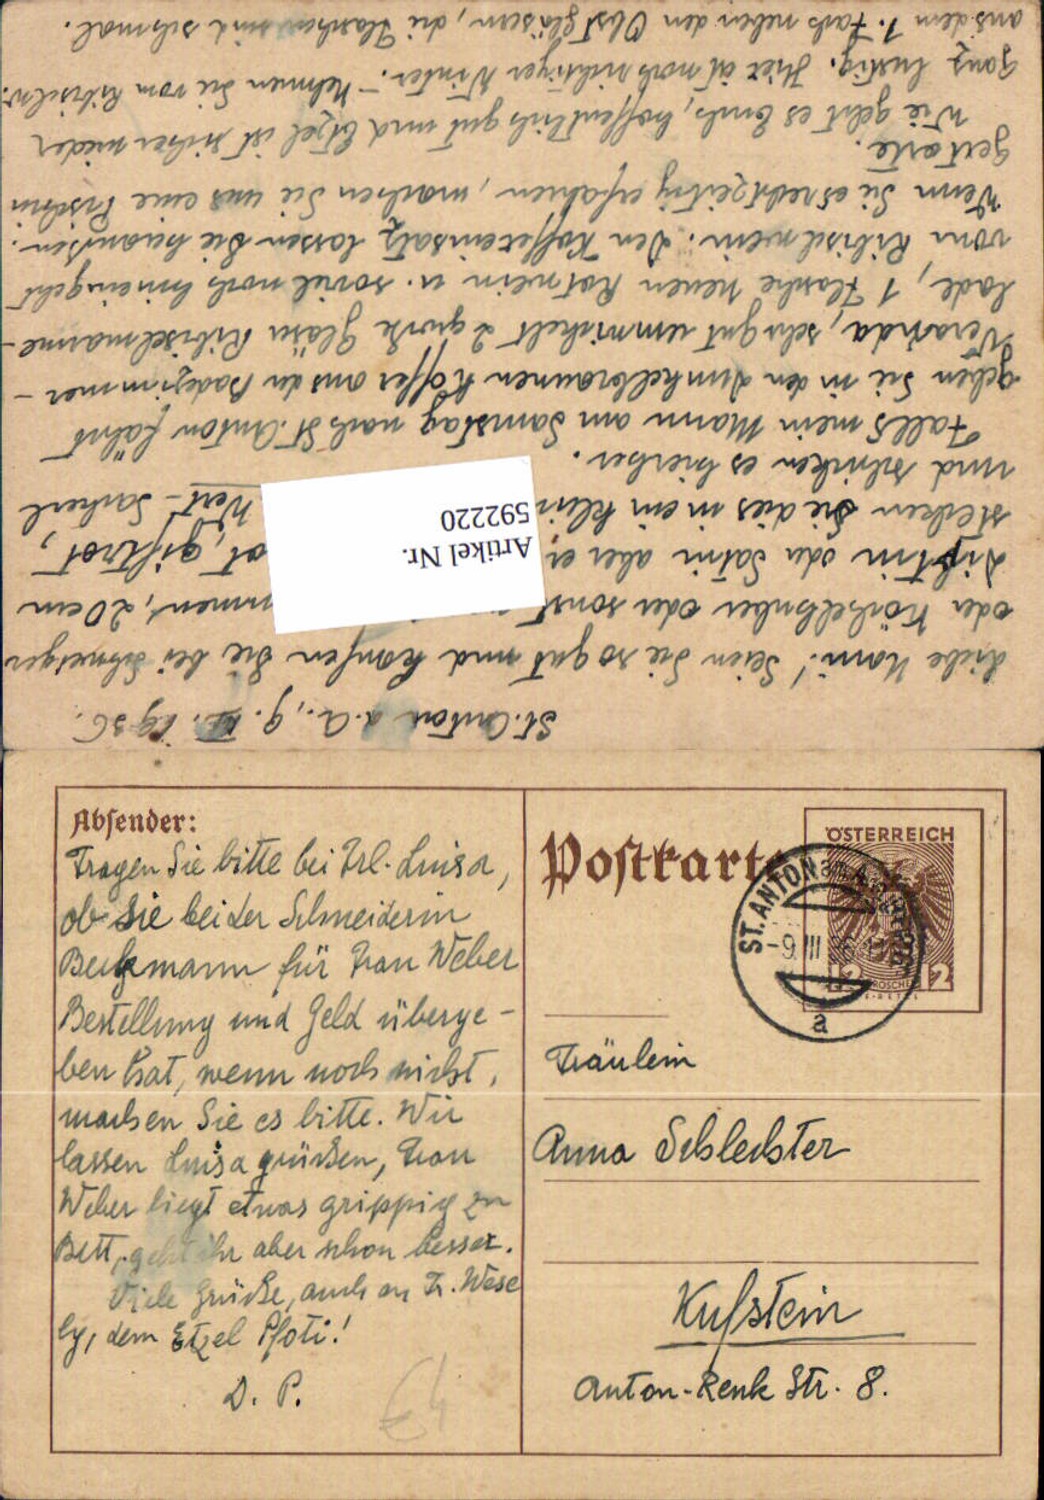 St. Anton a. A., 9. III. 1936.
Liebe Nanni! Seien Sie so gut und kaufen Sie bei
oder oder sonst 20 cm
oder Satin aber giftrot,
stecken Sie dies in ein klein Wert-
und schicken es hierher.
Falls mein Mann am Samstag nach St. Anton fährt
geben Sie in den dunkelbraunen Koffer aus der Badezimmer-
Veranda, sehr gut umwickelt 2 große Gläser Ribiselmarme-
lade, 1 Flasche neuen Rotwein u. soviel noch hineingeht
vom Ribiselwein. Den Koffereinsatz lassen Sie heraußen.
Wenn Sie es rechtzeitig erfahren, machen Sie uns eine
Gertorte.
Wie geht es Euch, hoffentlich gut und Etzel ist sicher wieder
ganz lustig. Hier ist noch richtiger Winter. - Nehmen Sie vom Ribiselw.
aus dem 1. Fach neben den Obstgläsern, die Flaschen sind schmal.
Artikel Nr.
592220
Absender:
Fragen Sie bitte bei Frl. Luisa,
ob Sie bei der Schneiderin
Bergmann für Frau Weber
Bestellung und Geld überge-
ben hat, wenn noch nicht,
machen Sie es bitte. Wir
lassen Luisa grüßen, Frau
Weber liegt etwas grippig zu
Bett, geht ihr aber schon besser.
Viele Grüße, auch an Fr. Wese
ly, dem Etzel Pfoti!
D. P.
Postkarte
ÖSTERREICH
12 GROSCHEN 12
ST. ANTON am Arlberg
-9. III 36
a
Fräulein
Anna Schlechter
Kufstein
Anton-Renk Str. 8.